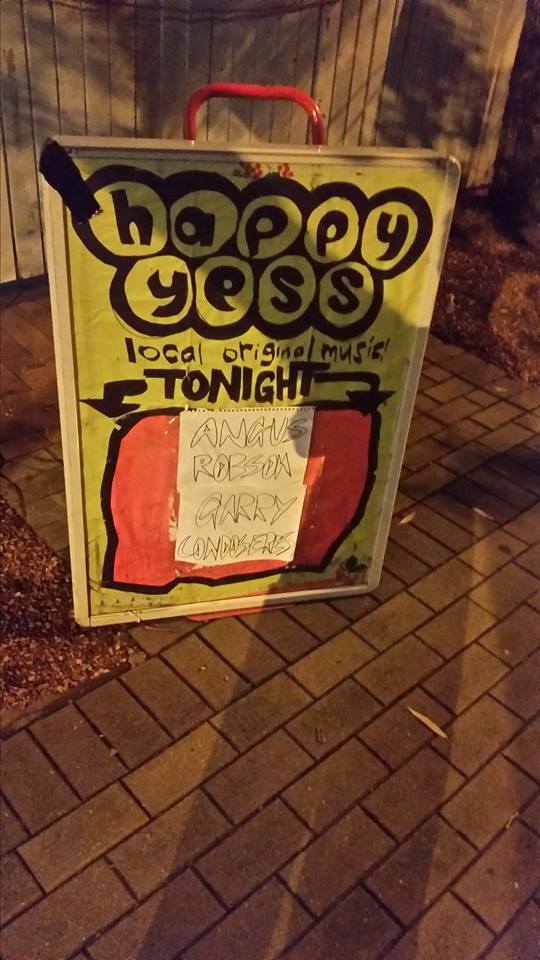 happy
yess
local original music!
TONIGHT
ANGUS
ROBSON
GARRY
CONDASERES